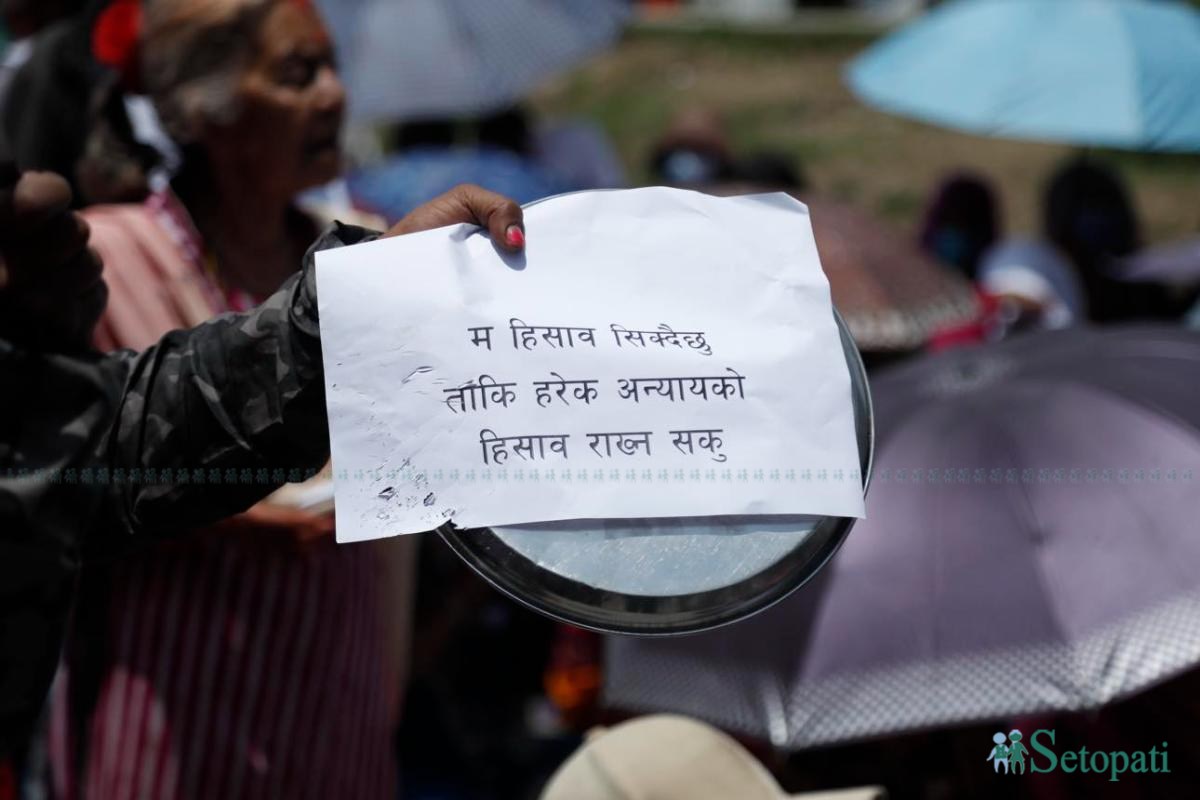 म हिसाव सिक्दैछु
ताकि हरेक अन्यायको
हिसाव राख्न सकु
Setopati